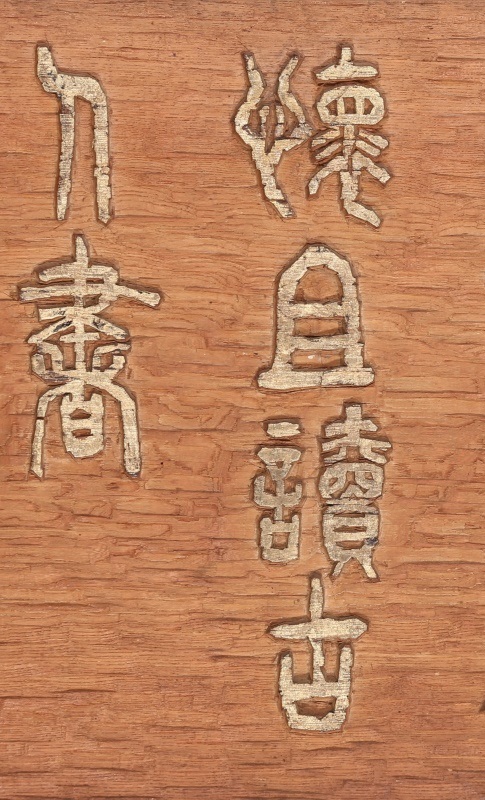 懷且讀古
人書